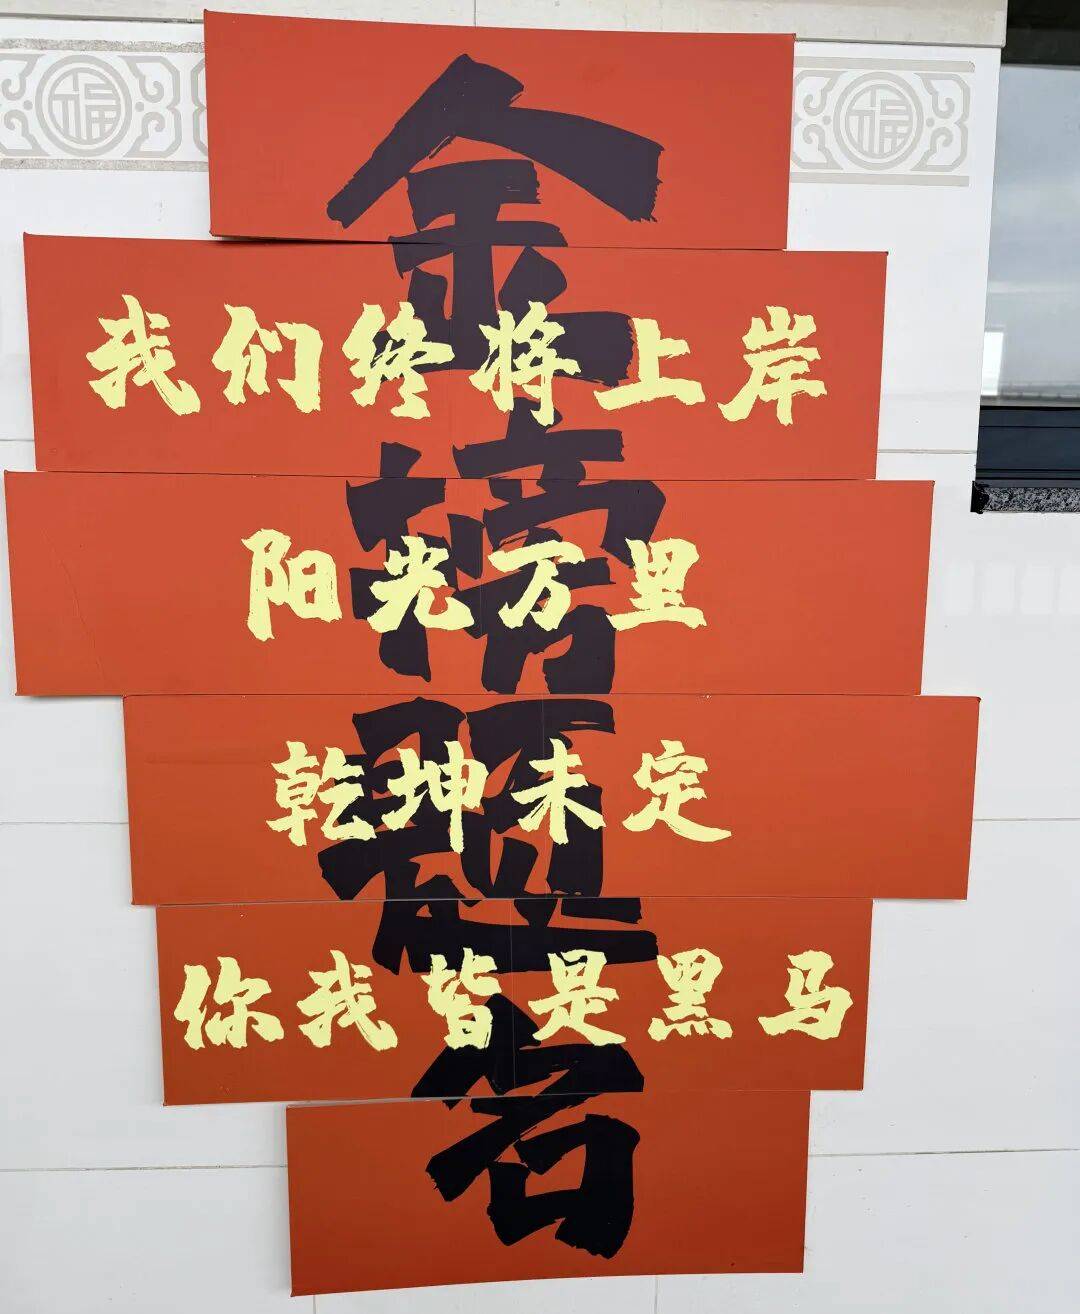 金榜题名
我们终将上岸
阳光万里
乾坤未定
你我皆是黑马
福
福